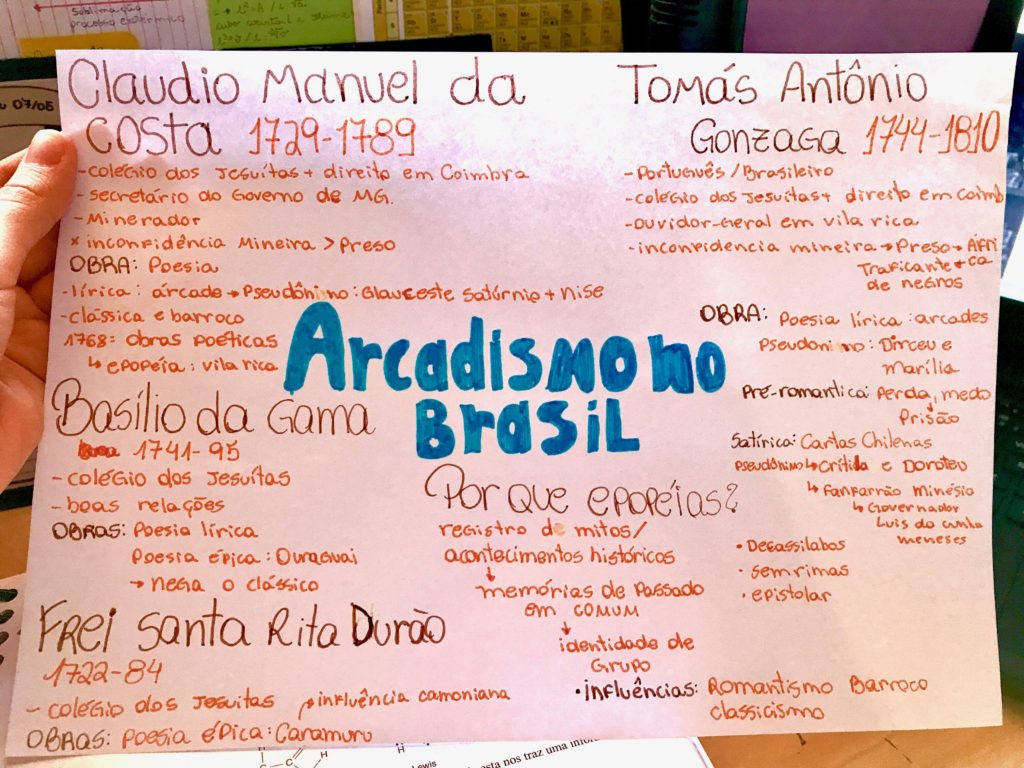 sublimação
processo endotérmico
u 07/05
Claudio Manuel da
Costa 1729-1789
-colégio dos Jesuítas + direito em Coimbra
-secretário do Governo de MG.
-Minerador
x inconfidência Mineira > Preso
OBRA: Poesia
-lírica: árcade → Pseudônimo: Glauceste Satúrnio + Nise
-clássica e barroco
1768: obras poéticas
↳ epopéia: vila rica
Tomás Antônio
Gonzaga 1744-1810
-Português/Brasileiro
-colégio dos Jesuítas + direito em Coimb
-ouvidor-Geral em vila rica
-inconfidencia mineira → Preso → Áfri
ca
Traficante ←
de negros
OBRA: Poesia lírica: arcades
Pseudonimo: Dirceu e
marília
Pré-romantica: Perda, medo
Prisão
Satírica: Cartas Chilenas
Pseudônimo ↳ Crítila e Doroteu
↳ Fanfarrão Minésio
↳ Governador
Luis da cunha
meneses
• Decassilabos
• sem rimas
• epistolar
Arcadismo no
Brasil
Basílio da Gama
1741-95
- colégio dos Jesuítas
- boas relações
OBRAS: Poesia lírica
Poesia épica: Ouraguai
→ nega o clássico
Por que epopéias?
registro de mitos/
acontecimentos históricos
↓
memórias de Passado
em comum
↓
identidade de
Grupo
• influências: Romantismo Barroco
classicismo
Frei Santa Rita Durão
1722-84
- colégio dos Jesuitas
influência camoniana
OBRAS: Poesia épica: Caramuru
H
H
C
C
H
Lewis
sta nos traz uma